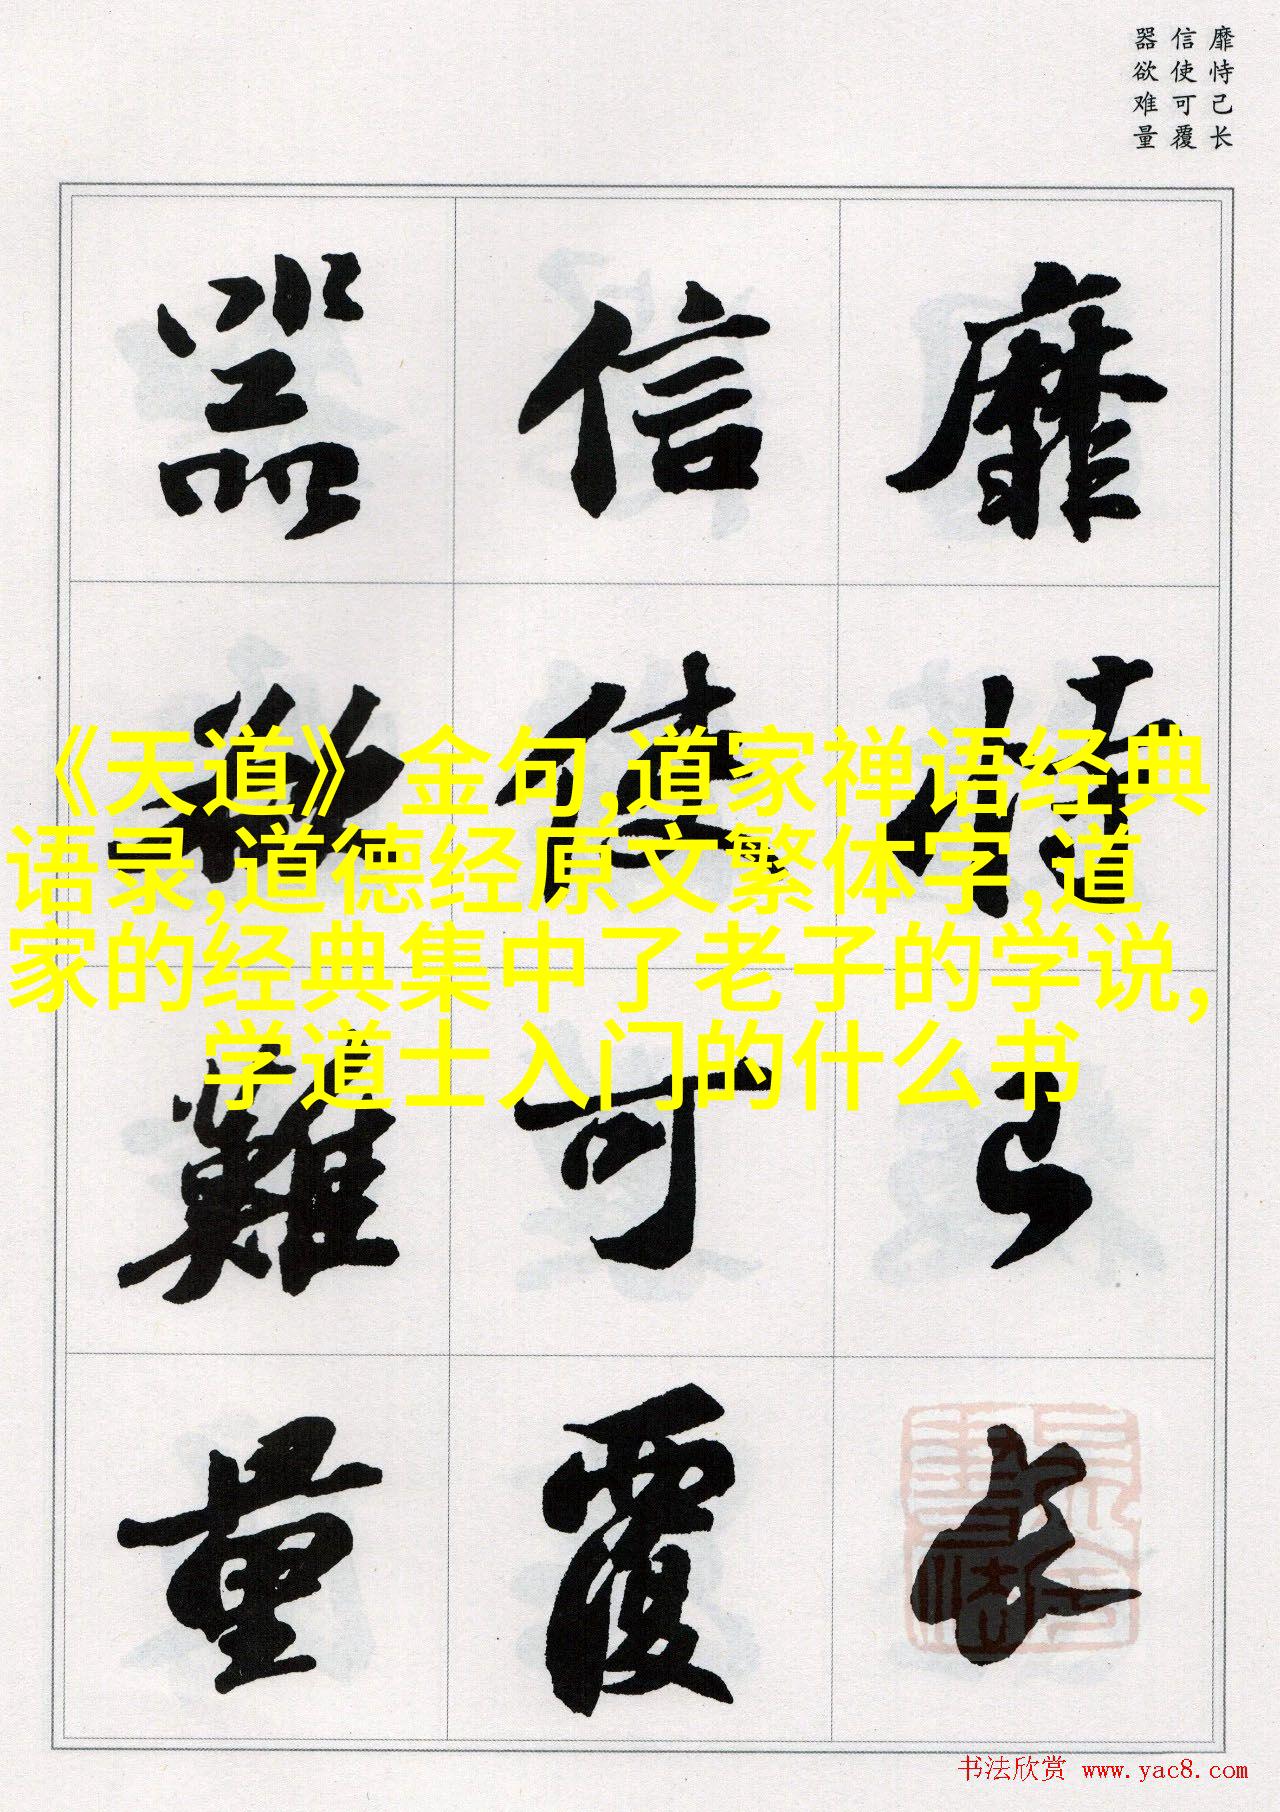 靡恃己长
信使可覆
器欲难量
靡恃己長
信使可覆
器欲難量
《天道》金句,道家禅语经典
语录,道德经原文繁体字,道
家的经典集中了老子的学说,
学道士入门的什么书
书法欣赏 www.yac8.com